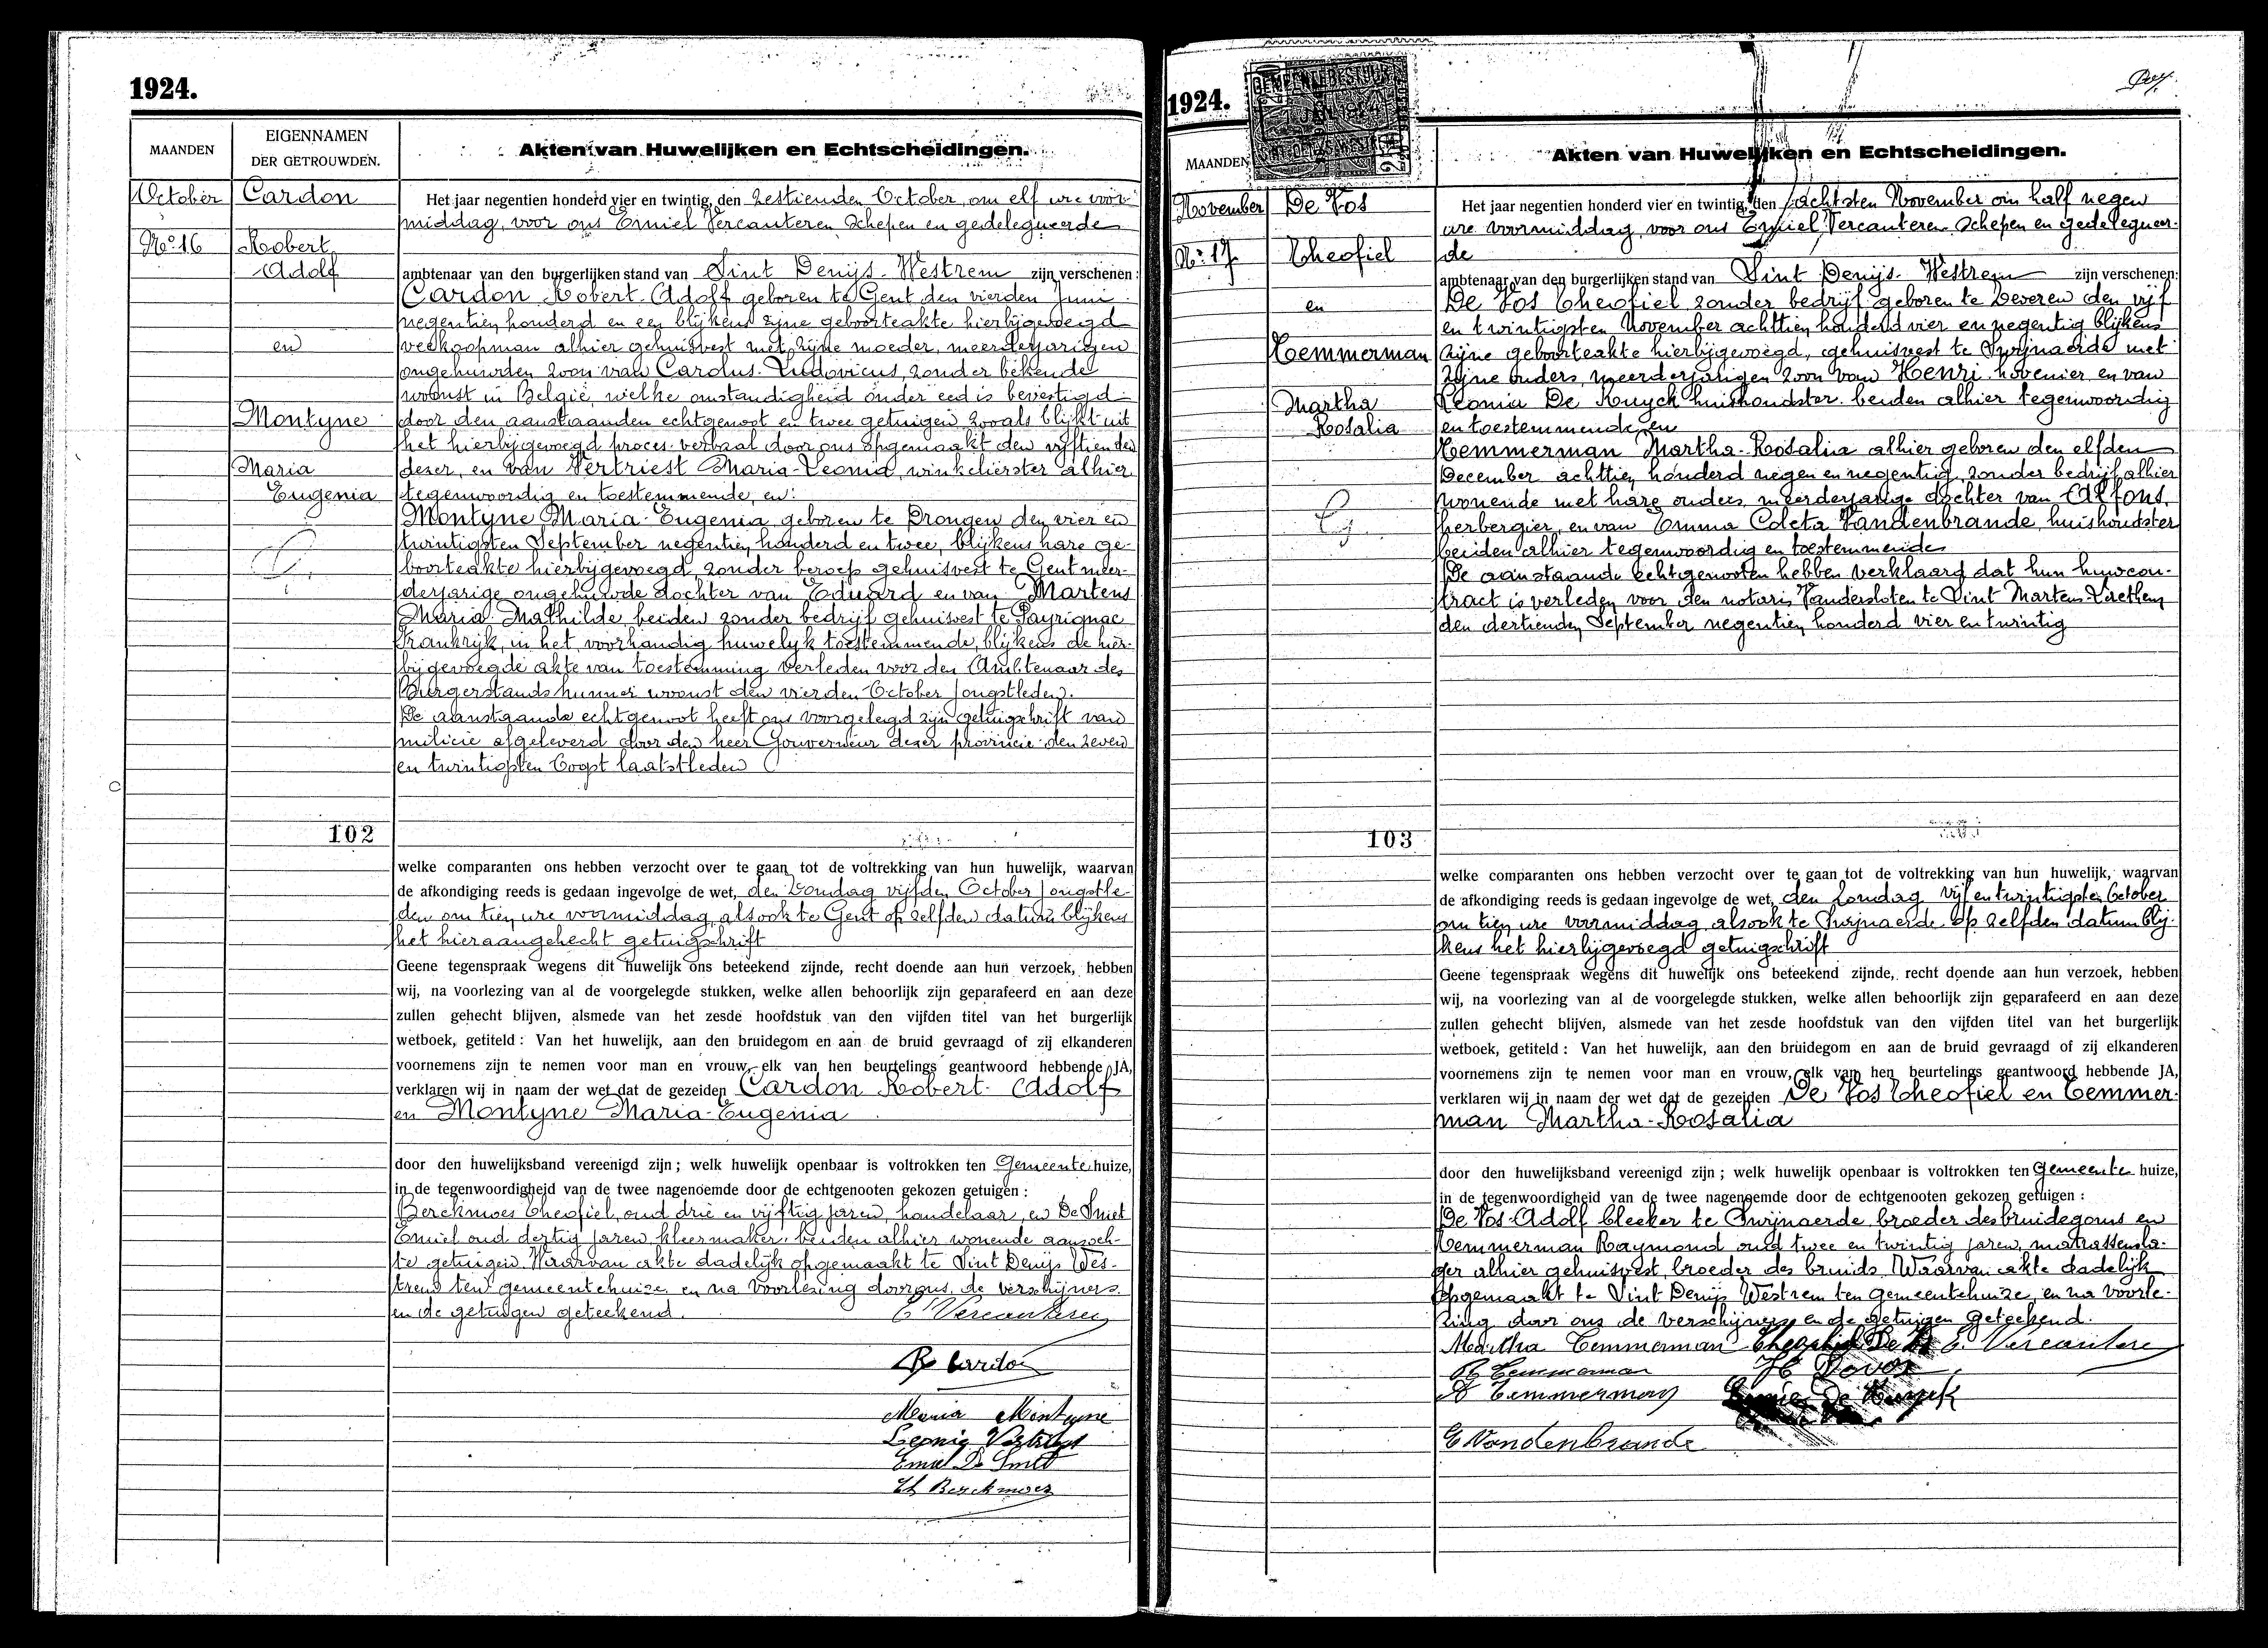 1924.
MAANDEN
EIGENNAMEN
DER GETROUWDEN.
Akten van Huwelijken en Echtscheidingen.
October
No. 16
Cardon
Robert
Adolf
en
Montyne
Maria
Eugenia
Het jaar negentien honderd vier en twintig, den zestienden October, om elf ure voor-
middag, voor ons Emiel Vercauteren Schepen en gedelegueerde
ambtenaar van den burgerlijken stand van Sint Denijs-Westrem zijn verschenen:
Cardon Robert-Adolf geboren te Gent den vierden Juni
negentien honderd en een blijkens zijne geboorteakte hierbijgevoegd
veekoopman alhier gehuisvest met zijne moeder, meerderjarigen
ongehuwden zoon van Carolus-Ludovicus, zonder bekende
woonst in België, welke omstandigheid onder eed is bevestigd
door den aanstaanden echtgenoot en twee getuigen zooals blijkt uit
het hierbijgevoegd proces-verbaal door ons opgemaakt den vijftienden
dezer, en van Vertriest Maria-Leonia, winkelierster alhier
tegenwoordig en toestemmende, en:
Montyne Maria-Eugenia geboren te Drongen den vier en
twintigsten September negentien honderd en twee, blijkens hare ge-
boorteakte hierbijgevoegd, zonder beroep gehuisvest te Gent meer-
derjarige ongehuwde dochter van Eduard en van Martens
Maria-Mathilde, beiden zonder bedrijf gehuisvest te Payrignac
Frankrijk, in het voorhandig huwelyk toestemmende, blijkens de hier-
bijgevoegde akte van toestemming verleden voor den Ambtenaar des
Burgerstands hunner woonst den vierden October jongstleden.
De aanstaande echtgenoot heeft ons voorgelegd zijn getuigschrift van
milicie afgeleverd door den heer Gouverneur dezer provincie den zeven
en twintigsten Oogst laatstleden
102
welke comparanten ons hebben verzocht over te gaan tot de voltrekking van hun huwelijk, waarvan
de afkondiging reeds is gedaan ingevolge de wet, den Zondag vijfden October jongstle-
den om tien ure voormiddag, alsook te Gent op zelfden datum blijkens
het hieraangehecht getuigschrift
Geene tegenspraak wegens dit huwelijk ons beteekend zijnde, recht doende aan hun verzoek, hebben
wij, na voorlezing van al de voorgelegde stukken, welke allen behoorlijk zijn geparafeerd en aan deze
zullen gehecht blijven, alsmede van het zesde hoofdstuk van den vijfden titel van het burgerlijk
wetboek, getiteld: Van het huwelijk, aan den bruidegom en aan de bruid gevraagd of zij elkanderen
voornemens zijn te nemen voor man en vrouw, elk van hen beurtelings geantwoord hebbende JA,
verklaren wij in naam der wet dat de gezeiden Cardon Robert-Adolf
en Montyne Maria-Eugenia
door den huwelijksband vereenigd zijn; welk huwelijk openbaar is voltrokken ten Gemeentehuize,
in de tegenwoordigheid van de twee nagenoemde door de echtgenooten gekozen getuigen:
Berckmoes Theofiel, oud drie en vijftig jaren, handelaar, en De Smet
Emiel oud dertig jaren, kleermaker, beiden alhier wonende aanzoch-
te getuigen. Waarvan akte dadelijk opgemaakt te Sint Denijs Wes-
trem ten gemeentehuize en na voorlezing door ons, de verschijners
en de getuigen geteekend.
E Vercauteren
R Cardon
Maria Montyne
Leonie Vertriest
Emiel De Smet
Th Berckmoes
1924.
MAANDEN
Akten van Huwelijken en Echtscheidingen.
November
No. 17
De Vos
Theofiel
en
Temmerman
Martha
Rosalia
Het jaar negentien honderd vier en twintig, den achtsten November om half negen
ure voormiddag, voor ons Emiel Vercauteren Schepen en gedelegueer-
de
ambtenaar van den burgerlijken stand van Sint Denijs-Westrem zijn verschenen:
De Vos Theofiel zonder bedrijf geboren te Deveren den vijf
en twintigsten November achttien honderd vier en negentig blijkens
zijne geboorteakte hierbijgevoegd, gehuisvest te Swijnaerde met
zijne ouders, meerderjarigen zoon van Henri hovenier en van
Leonia De Knyck huishoudster beiden alhier tegenwoordig
en toestemmende, en
Temmerman Martha-Rosalia alhier geboren den elfden
December achttien honderd negen en negentig zonder bedrijf alhier
wonende met hare ouders, meerderjarige dochter van Alfons
herbergier, en van Emma Coleta Vandenbrande, huishoudster
beiden alhier tegenwoordig en toestemmende
De aanstaande echtgenooten hebben verklaard dat hun huwcon-
tract is verleden voor den notaris Vandersloten te Sint Martens Laethem
den dertienden September negentien honderd vier en twintig
103
welke comparanten ons hebben verzocht over te gaan tot de voltrekking van hun huwelijk, waarvan
de afkondiging reeds is gedaan ingevolge de wet, den Zondag vijf en twintigsten October
om tien ure voormiddag, alsook te Swijnaerde op zelfden datum blij-
kens het hierbijgevoegd getuigschrift
Geene tegenspraak wegens dit huwelijk ons beteekend zijnde, recht doende aan hun verzoek, hebben
wij, na voorlezing van al de voorgelegde stukken, welke allen behoorlijk zijn geparafeerd en aan deze
zullen gehecht blijven, alsmede van het zesde hoofdstuk van den vijfden titel van het burgerlijk
wetboek, getiteld: Van het huwelijk, aan den bruidegom en aan de bruid gevraagd of zij elkanderen
voornemens zijn te nemen voor man en vrouw, elk van hen beurtelings geantwoord hebbende JA,
verklaren wij in naam der wet dat de gezeiden De Vos Theofiel en Temmer-
man Martha-Rosalia
door den huwelijksband vereenigd zijn; welk huwelijk openbaar is voltrokken ten Gemeente huize,
in de tegenwoordigheid van de twee nagenoemde door de echtgenooten gekozen getuigen:
De Vos Adolf bleeker te Swijnaerde broeder des bruidegoms en
Temmerman Raymond oud twee en twintig jaren, matrassenla-
ger alhier gehuisvest, broeder des bruids. Waarvan akte dadelijk
opgemaakt te Sint Denijs Westrem ten gemeentehuize, en na voorle-
zing door ons de verschijners en de getuigen geteekend.
Martha Temmerman Theophiel De Vos E. Vercauteren
R Temmerman
A Temmerman
E Vandenbrande